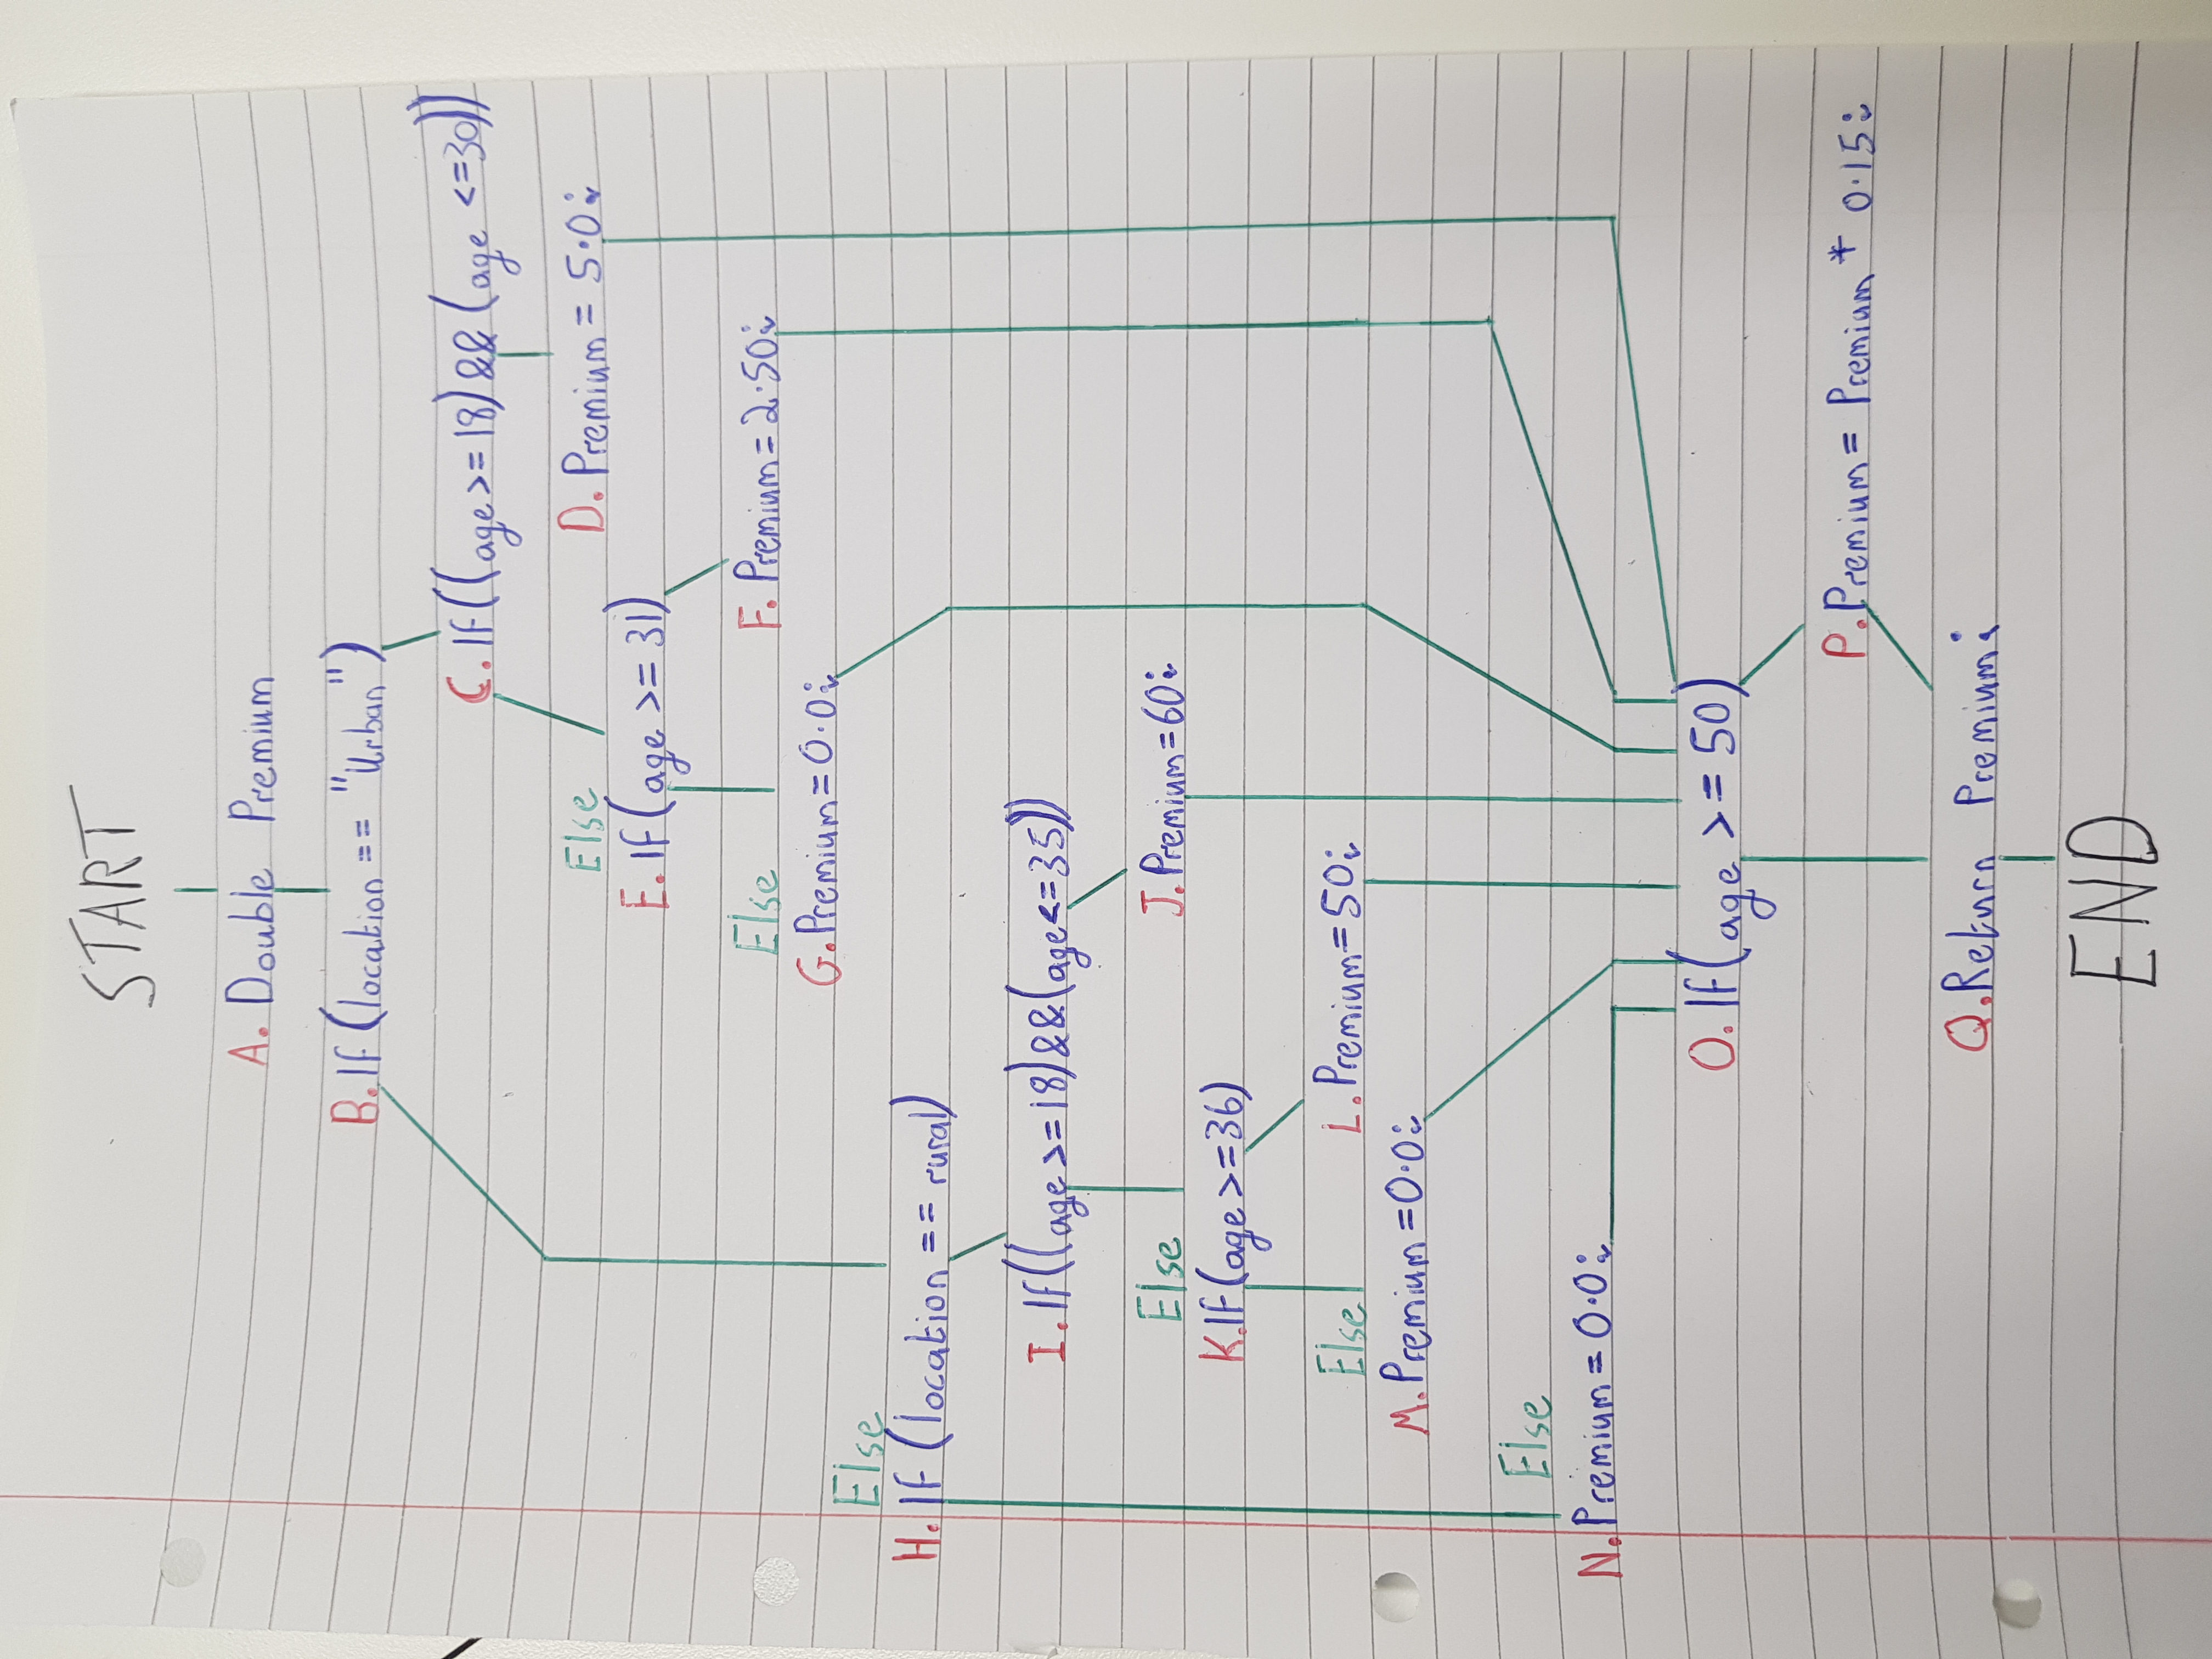 START
A. Double Premium
B. If (location == "Urban")
C. If ((age >= 18) && (age <=30))
Else
D. Premium = 5.0;
E. If (age >= 31)
Else
F. Premium = 2.50;
G. Premium = 0.0;
Else
H. If (location == rural)
I. If ((age >= 18) && (age <= 35))
Else
J. Premium = 60;
K. If (age >= 36)
Else
L. Premium = 50;
M. Premium = 0.0;
Else
N. Premium = 0.0;
O. If (age >= 50)
P. Premium = Premium * 0.15;
Q. Return Premium;
END